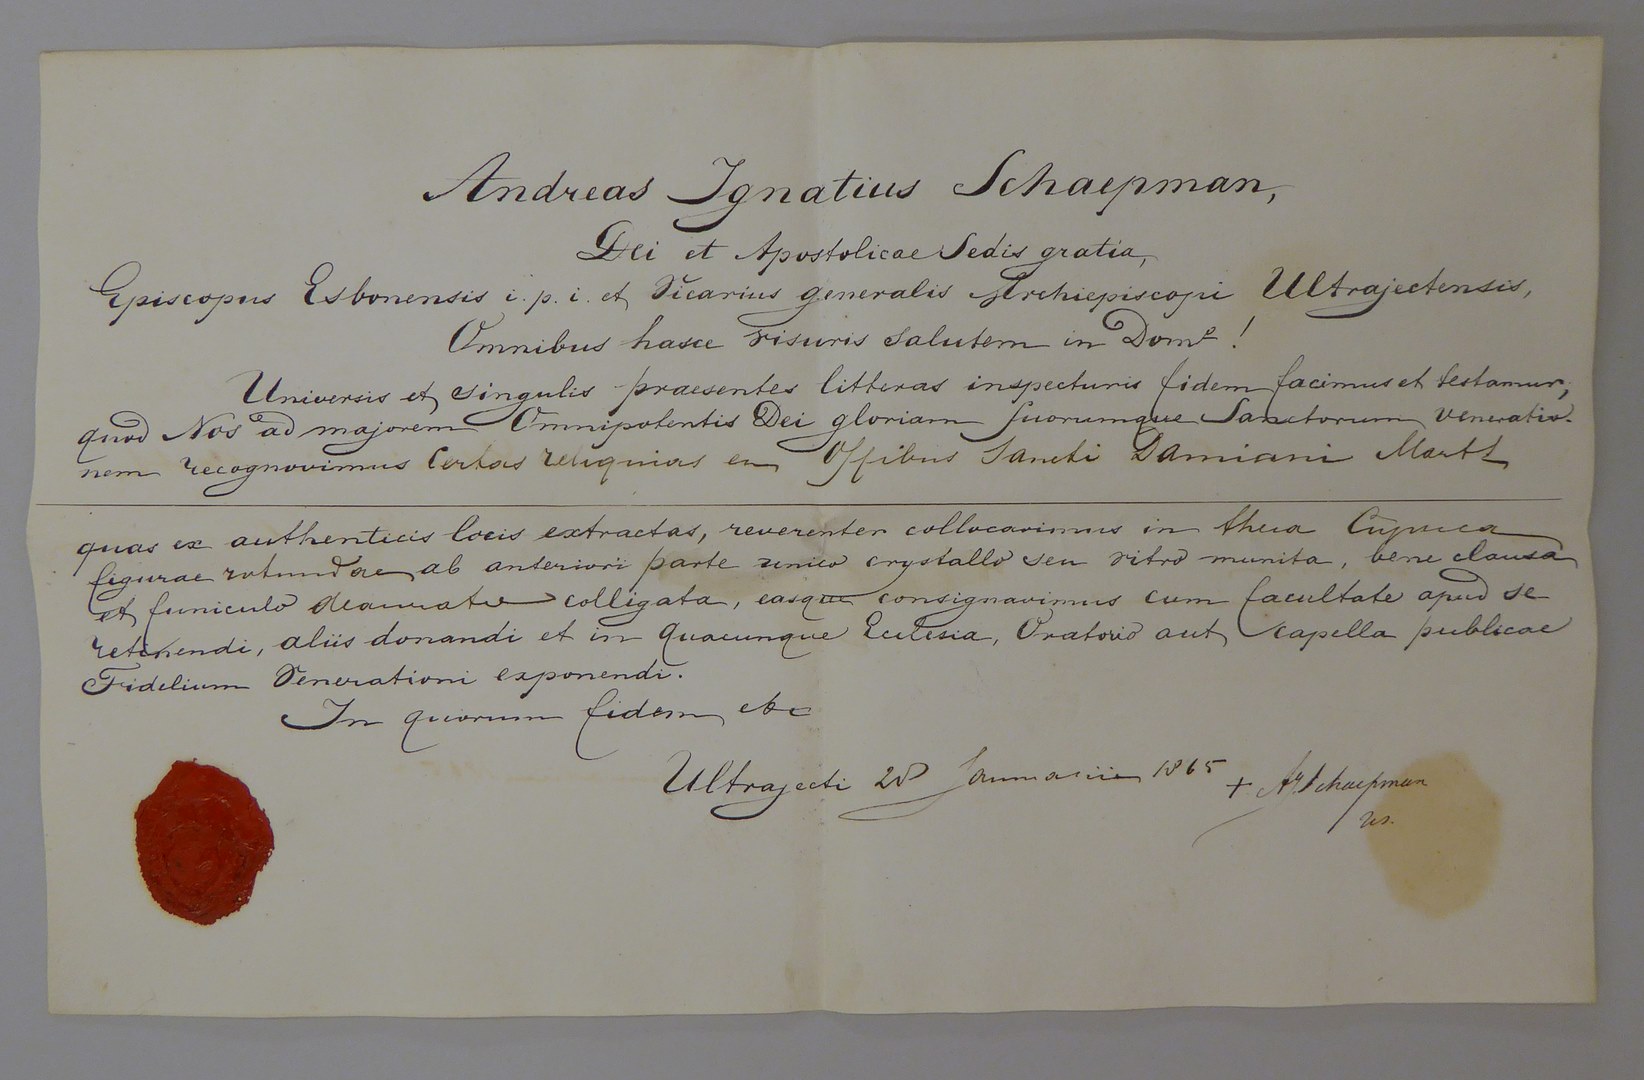 Andreas Ignatius Schaepman,
Dei et Apostolicae Sedis gratia,
Episcopus Esbonensis i. p. i. et Vicarius generalis Archiepiscopi Ultrajectensis,
Omnibus hasce visuris salutem in Domo!
Universis et singulis praesentes litteras inspecturis fidem facimus et testamur,
quod Nos ad majorem Omnipotentis Dei gloriam suorumque Sanctorum veneratio-
nem recognovimus Certas reliquias ex Ossibus Sancti Damiani Mart
quas ex authenticis locis extractas, reverenter collocavimus in theca Cuprea
figurae rotundae ab anteriori parte unico crystallo seu vitro munita, bene clausa
et funiculo deaurato colligata, easque consignavimus cum facultate apud se
retinendi, aliis donandi et in quacunque Ecclesia, Oratorio aut capella publicae
Fidelium Venerationi exponendi.
In quorum fidem etc
Ultrajecti 28 Januarii 1865 + A. I. Schaepman